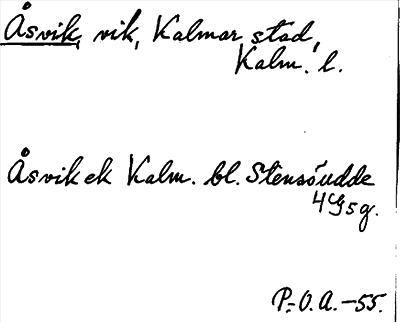 Åsvik, vik, Kalmar stad,
Kalm. l.
Åsvik ek Kalm. bl. Stensöudde
4G5g.
P.O.A.-55.